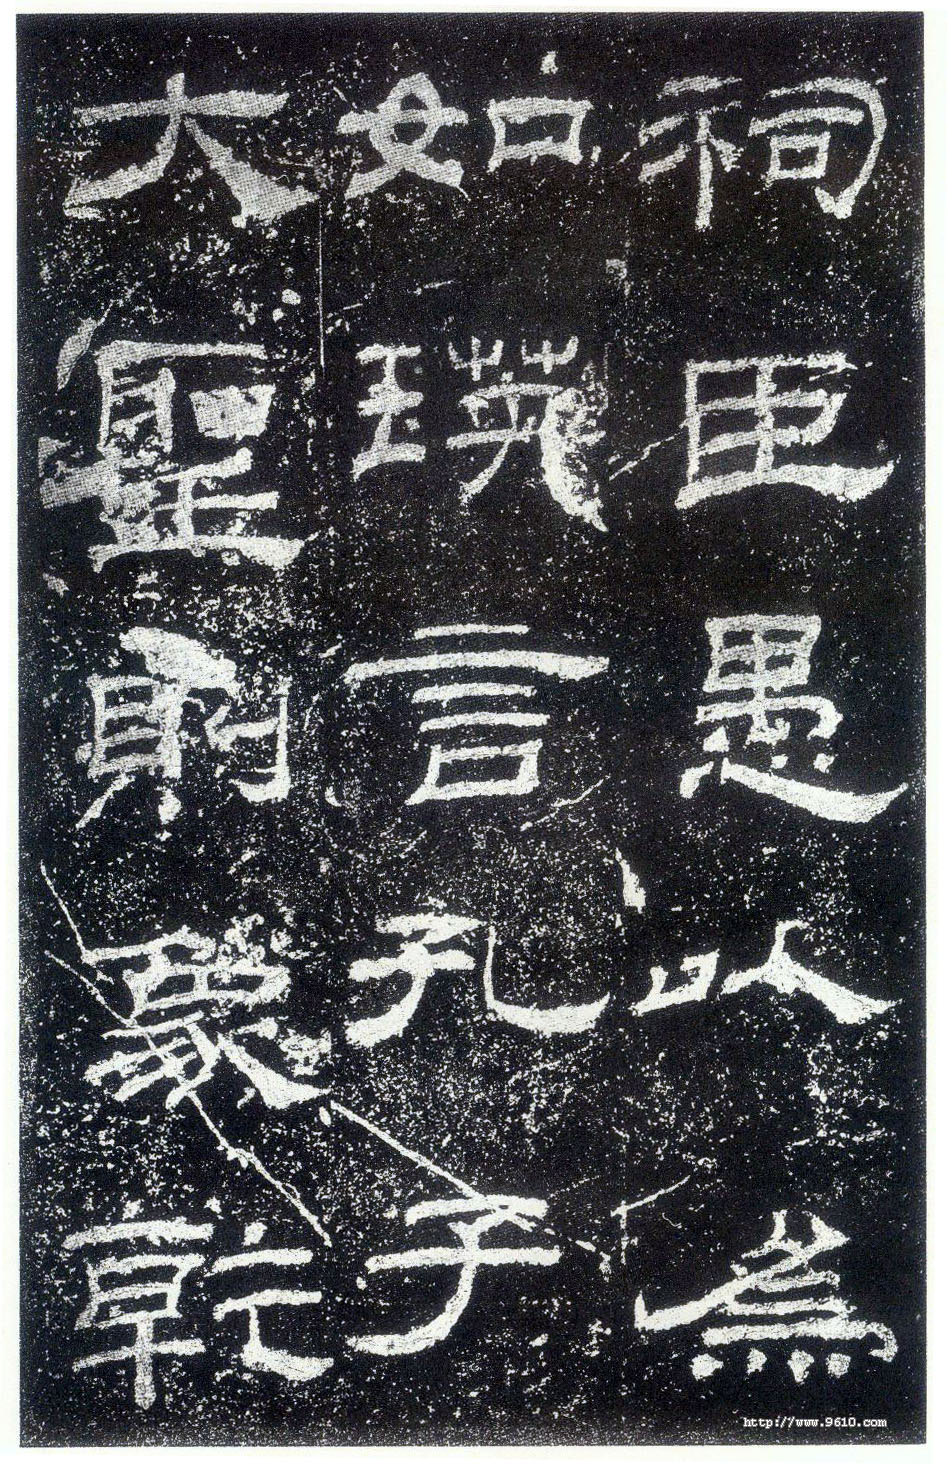 祠臣愚以為
如瑛言孔子
大聖則象乾
http://www.9610.com